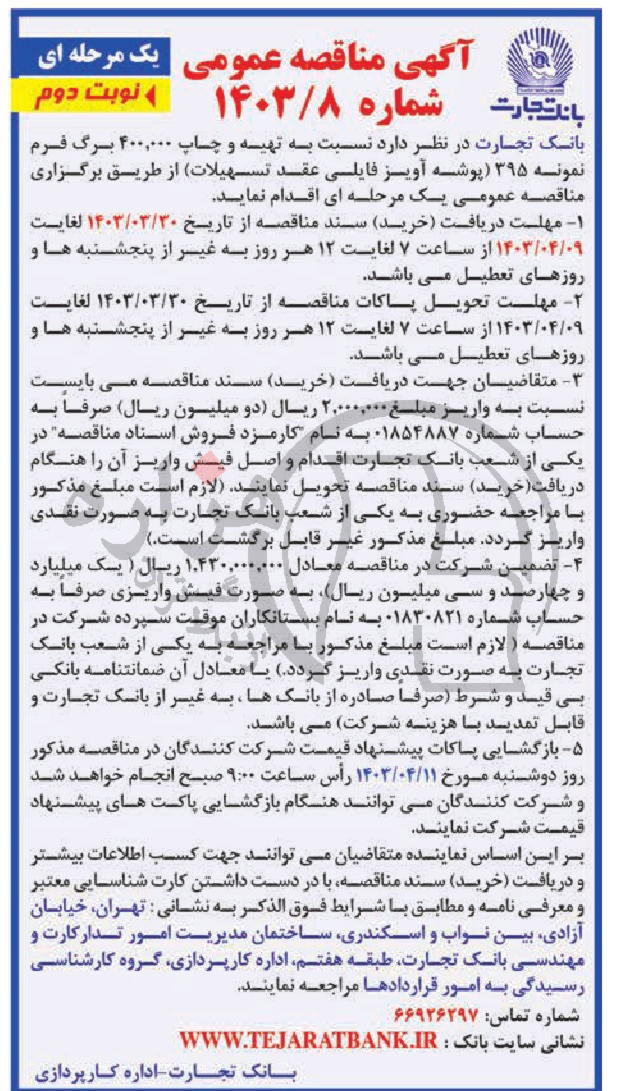 بانک تجارت
آگهی مناقصه عمومی
شماره ۱۴۰۳/۸
یک مرحله ای
نوبت دوم
بانک تجارت در نظر دارد نسبت به تهیه و چاپ ۴۰۰,۰۰۰ برگ فرم
نمونه ۳۹۵ (پوشه آویز فایلی عقد تسهیلات) از طریق برگزاری
مناقصه عمومی یک مرحله ای اقدام نماید.
۱- مهلت دریافت (خرید) سند مناقصه از تاریخ ۱۴۰۳/۰۳/۳۰ لغایت
۱۴۰۳/۰۴/۰۹ از ساعت ۷ لغایت ۱۲ هر روز به غیر از پنجشنبه ها و
روزهای تعطیل می باشد.
۲- مهلت تحویل پاکات مناقصه از تاریخ ۱۴۰۳/۰۳/۳۰ لغایت
۱۴۰۳/۰۴/۰۹ از ساعت ۷ لغایت ۱۲ هر روز به غیر از پنجشنبه ها و
روزهای تعطیل می باشد.
۳- متقاضیان جهت دریافت (خرید) سند مناقصه می بایست
نسبت به واریز مبلغ ۲,۰۰۰,۰۰۰ ریال (دو میلیون ریال) صرفاً به
حساب شماره ۰۱۸۵۴۸۸۷ به نام "کارمزد فروش اسناد مناقصه" در
یکی از شعب بانک تجارت اقدام و اصل فیش واریز آن را هنگام
دریافت(خرید) سند مناقصه تحویل نمایند. (لازم است مبلغ مذکور
با مراجعه حضوری به یکی از شعب بانک تجارت به صورت نقدی
واریز گردد. مبلغ مذکور غیر قابل برگشت است.)
۴- تضمین شرکت در مناقصه معادل ۱,۴۳۰,۰۰۰,۰۰۰ ریال ( یک میلیارد
و چهارصد و سی میلیون ریال)، به صورت فیش واریزی صرفاً به
حساب شماره ۰۱۸۳۰۸۲۱ به نام بستانکاران موقت سپرده شرکت در
مناقصه ( لازم است مبلغ مذکور با مراجعه به یکی از شعب بانک
تجارت به صورت نقدی واریز گردد.) یا معادل آن ضمانتنامه بانکی
بی قید و شرط (صرفاً صادره از بانک ها ، به غیر از بانک تجارت و
قابل تمدید با هزینه شرکت) می باشد.
۵- بازگشایی پاکات پیشنهاد قیمت شرکت کنندگان در مناقصه مذکور
روز دوشنبه مورخ ۱۴۰۳/۰۴/۱۱ رأس ساعت ۹:۰۰ صبح انجام خواهد شد
و شرکت کنندگان می توانند هنگام بازگشایی پاکت های پیشنهاد
قیمت شرکت نمایند.
بر این اساس نماینده متقاضیان می توانند جهت کسب اطلاعات بیشتر
و دریافت (خرید) سند مناقصه، با در دست داشتن کارت شناسایی معتبر
و معرفی نامه و مطابق با شرایط فوق الذکر به نشانی : تهران، خیابان
آزادی، بین نواب و اسکندری، ساختمان مدیریت امور تدارکارت و
مهندسی بانک تجارت، طبقه هفتم، اداره کارپردازی، گروه کارشناسی
رسیدگی به امور قراردادها مراجعه نمایند.
شماره تماس: ۶۶۹۲۶۲۹۷
نشانی سایت بانک : WWW.TEJARATBANK.IR
بانک تجارت-اداره کارپردازی
هزاره